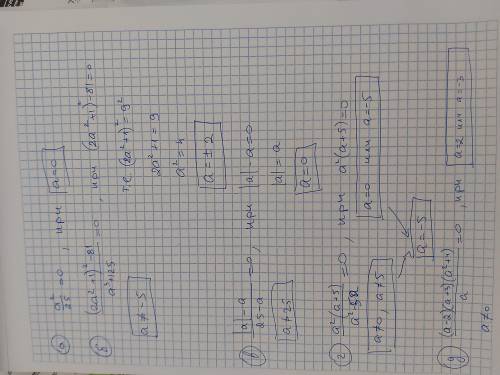 а) a²/25 = 0, при a=0
б) ((2a²+1)²-81)/(a³+125) = 0, при (2a²+1)²-81=0
т.е. (2a²+1)²=9²
2a²+1=9
a²=4
a=±2
a≠-5
в) (|a|-a)/(25-a) = 0, при |a|-a=0
|a|=a
a≠25
a=0
г) a²(a+5)/ = 0, при a²(a+5)=0
a=0 или a=-5
a≠0, a≠5
a=-5
д) (a-2)(a+3)(a²+1)/a = 0, при a=2 или a=-3
a≠0